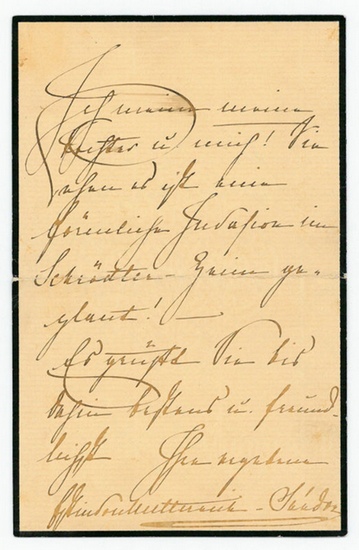 Ich meine meine
Tochter u. mich! Sie
sehen es ist eine
förmliche Invasion im
Schrödter-Heim ge-
plant! —
Es grüßt Sie bis
dahin bestens u. freund-
lichst Ihre ergebene